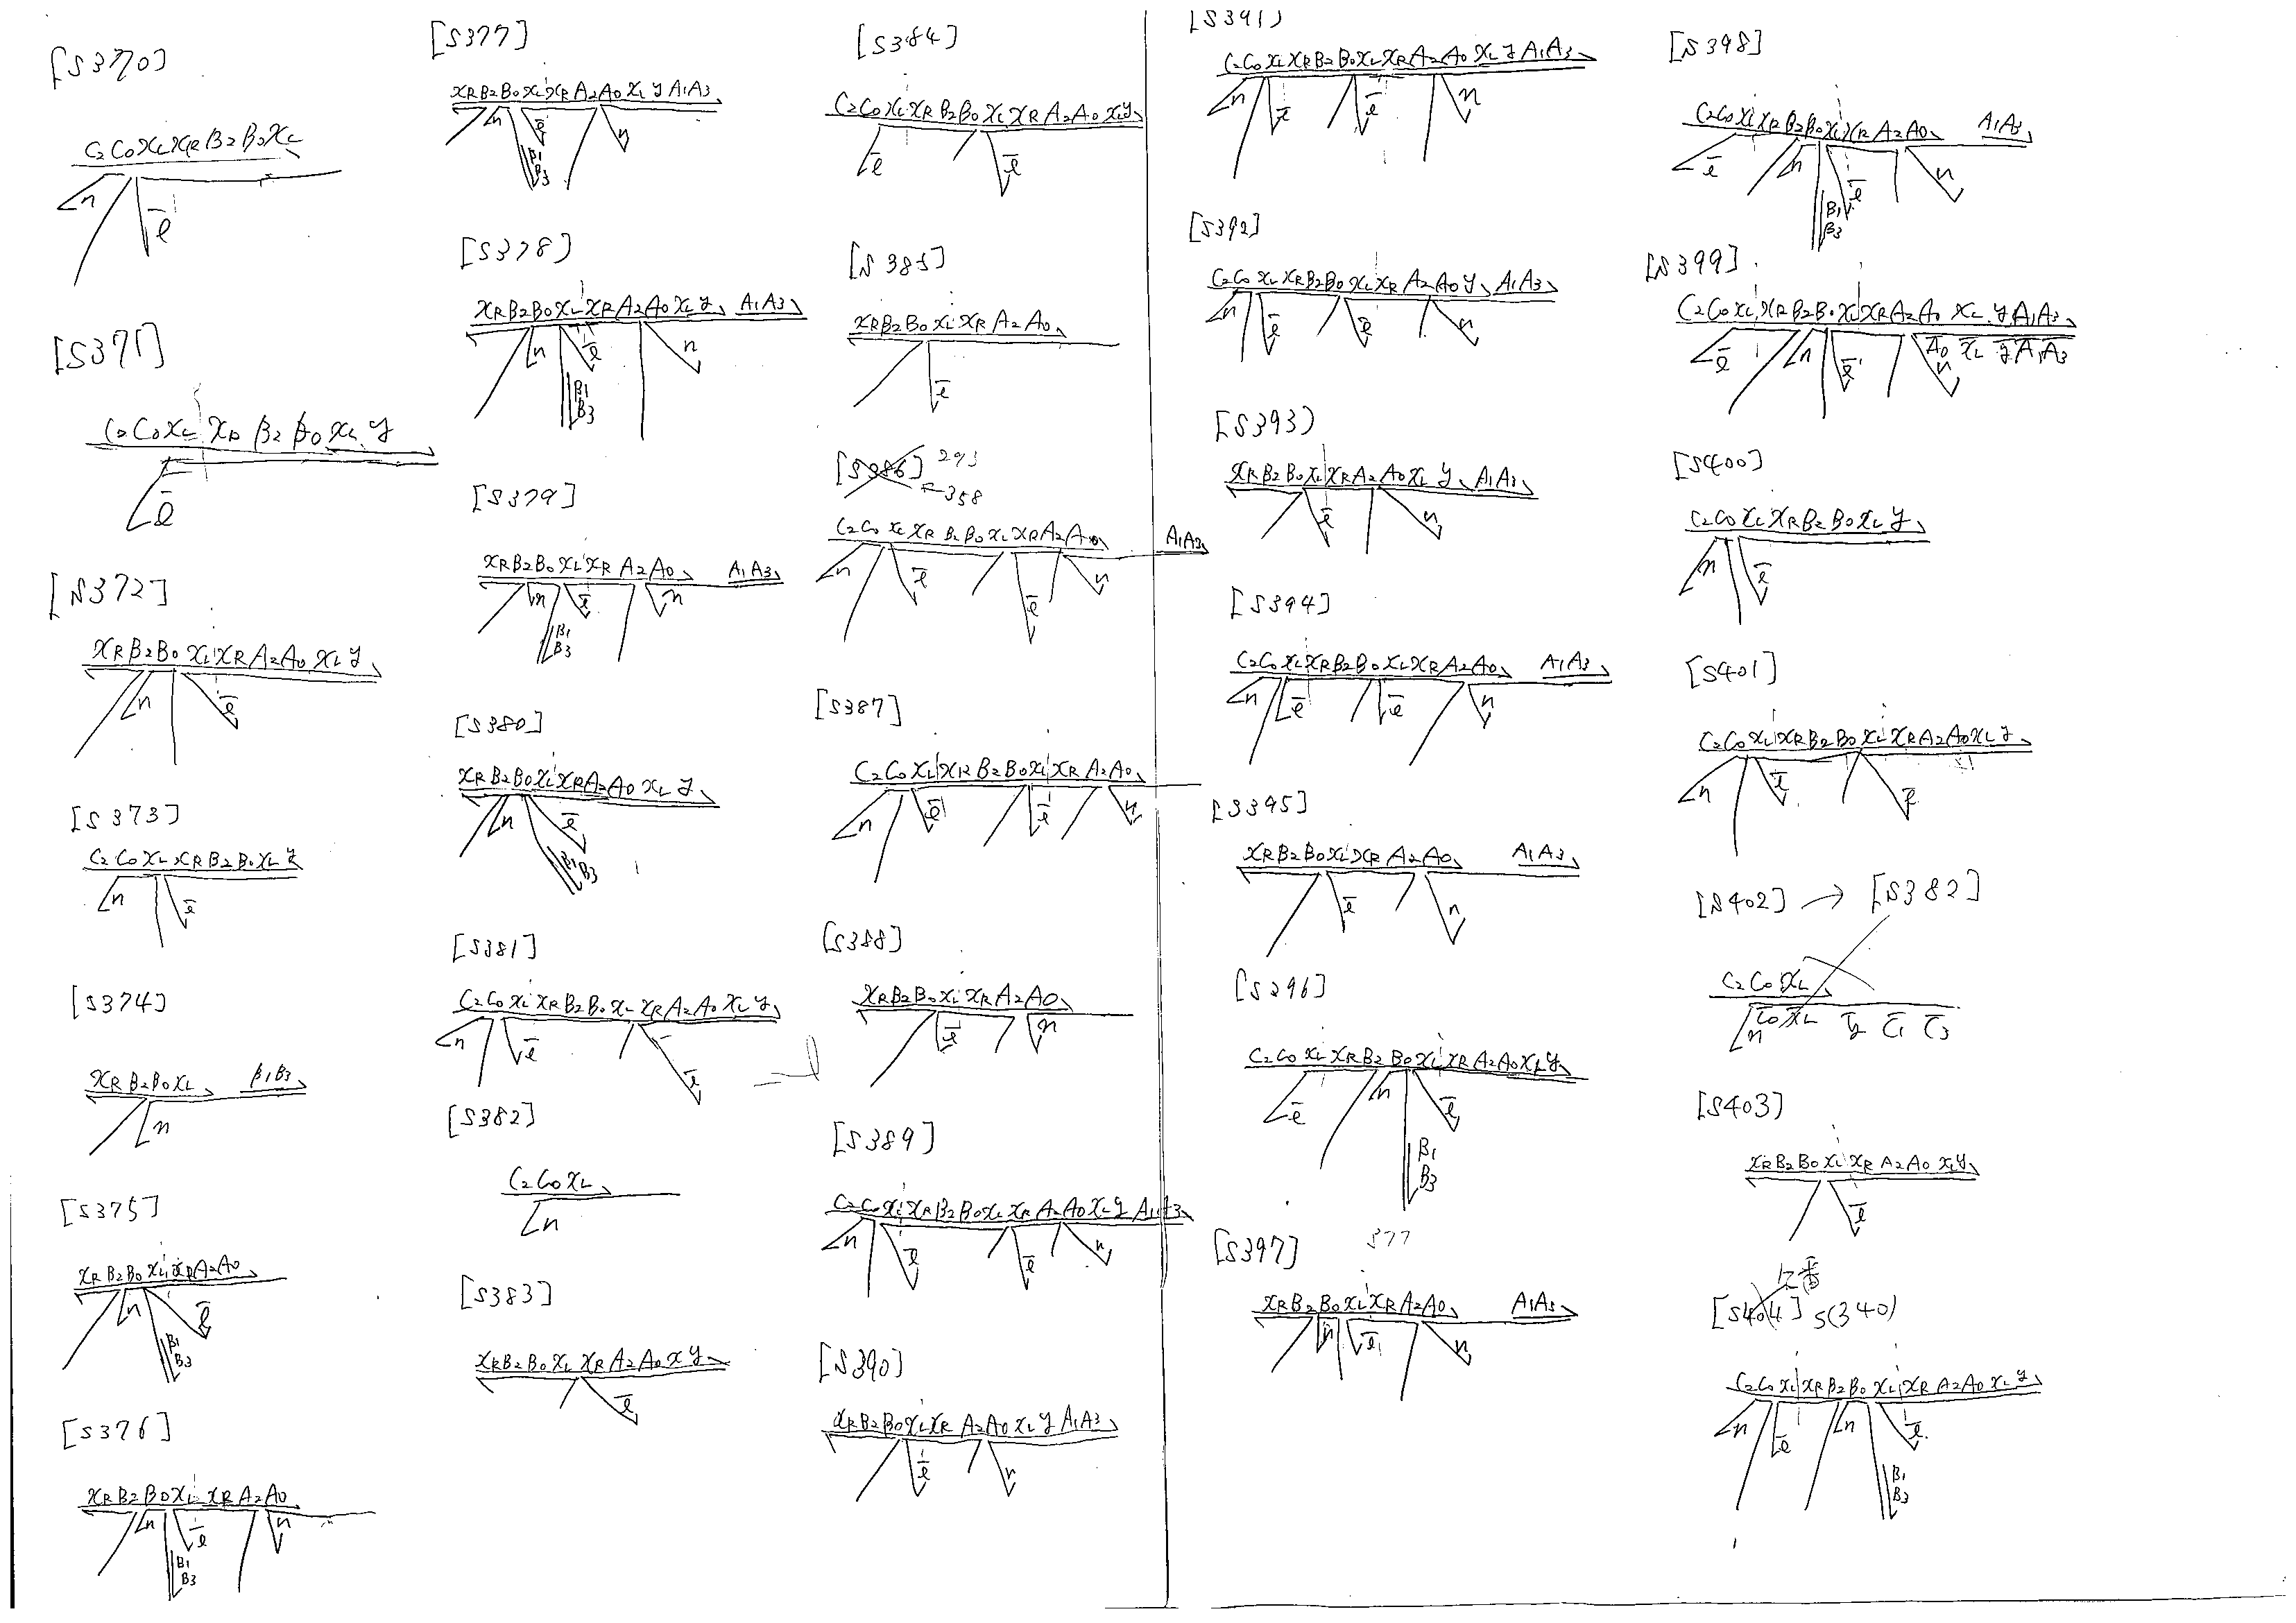 [S370]
C₂C₀x_L x_R B₂B₀x_L
n
l̄
[S371]
C₂C₀x_L x_R B₂ B₀ x_L y
l̄
[S372]
x_R B₂B₀ x_L x_R A₂A₀ x_L y
n l̄
[S373]
C₂C₀x_L x_R B₂B₀x_L y
n l̄
[S374]
x_R B₂B₀x_L B₁B₃
n
[S375]
x_R B₂B₀ x_L x_R A₂A₀
n l̄
B₁
B₃
[S376]
x_R B₂ B₀x_L x_R A₂A₀
n l̄ n
B₁
B₃
[S377]
x_R B₂B₀x_L x_R A₂A₀ x_L y A₁A₃
n l̄ n
B₁
B₃
[S378]
x_R B₂B₀x_L x_R A₂A₀ x_L y A₁A₃
n l̄ n
B₁
B₃
[S379]
x_R B₂B₀ x_L x_R A₂A₀ A₁A₃
n l̄ n
B₁
B₃
[S380]
x_R B₂B₀x_L x_R A₂A₀ x_L y
n l̄
B₁
B₃
[S381]
C₂C₀ x_L x_R B₂B₀ x_L x_R A₂A₀ x_L y
n l̄ l̄
[S382]
C₂C₀x_L
n
[S383]
x_R B₂B₀ x_L x_R A₂A₀ x y
l̄
[S384]
C₂C₀x_L x_R B₂B₀ x_L x_R A₂A₀ x_L y
l̄ l̄
[S385]
x_R B₂B₀ x_L x_R A₂A₀
l̄
[S386] 293
←358
C₂C₀ x_L x_R B₂B₀ x_L x_R A₂A₀ A₁A₃
n l̄ l̄ n
[S387]
C₂C₀x_L x_R B₂B₀x_L x_R A₂A₀
n l̄ l̄ n
[S388]
x_R B₂B₀x_L x_R A₂A₀
l̄ n
[S389]
C₂C₀x_L x_R B₂B₀x_L x_R A₂A₀x_L y A₁A₃
n l̄ l̄ n
[S390]
x_R B₂B₀x_L x_R A₂A₀ x_L y A₁A₃
l̄ n
[S391]
C₂C₀ x_L x_R B₂B₀x_L x_R A₂A₀ x_L y A₁A₃
n l̄ l̄ n
[S392]
C₂C₀ x_L x_R B₂B₀ x_L x_R A₂A₀ y A₁A₃
n l̄ l̄ n
[S393]
x_R B₂B₀x_L x_R A₂ A₀x_L y A₁A₃
l̄ n
[S394]
C₂C₀ x_L x_R B₂B₀ x_L x_R A₂A₀ A₁A₃
n l̄ l̄ n
[S395]
x_R B₂B₀x_L x_R A₂A₀ A₁A₃
l̄ n
[S396]
C₂C₀ x_L x_R B₂ B₀x_L x_R A₂A₀x_L y
l̄ n l̄
B₁
B₃
[S397] 377
x_R B₂B₀x_L x_R A₂A₀ A₁A₃
n l̄ n
[S398]
C₂C₀x_L x_R B₂B₀x_L x_R A₂A₀ A₁A₃
l̄ n l̄ n
B₁
B₃
[S399]
C₂C₀x_L x_R B₂B₀x_L x_R A₂A₀ x_L y A₁A₃
l̄ n l̄ Ā₀ x̄_L ȳ Ā₁ Ā₃
n
[S400]
C₂C₀x_L x_R B₂B₀x_L y
n l̄
[S401]
C₂C₀x_L x_R B₂B₀ x_L x_R A₂A₀x_L y
n l̄ l̄
[S402] → [S382]
C₂C₀x_L
n C̄₀ x̄_L ȳ C̄₁ C̄₃
[S403]
x_R B₂B₀ x_L x_R A₂A₀ x_L y
l̄
欠番
[S404] S(340)
C₂C₀x_L x_R B₂B₀ x_L x_R A₂A₀ x_L y
n l̄ n l̄
B₁
B₃